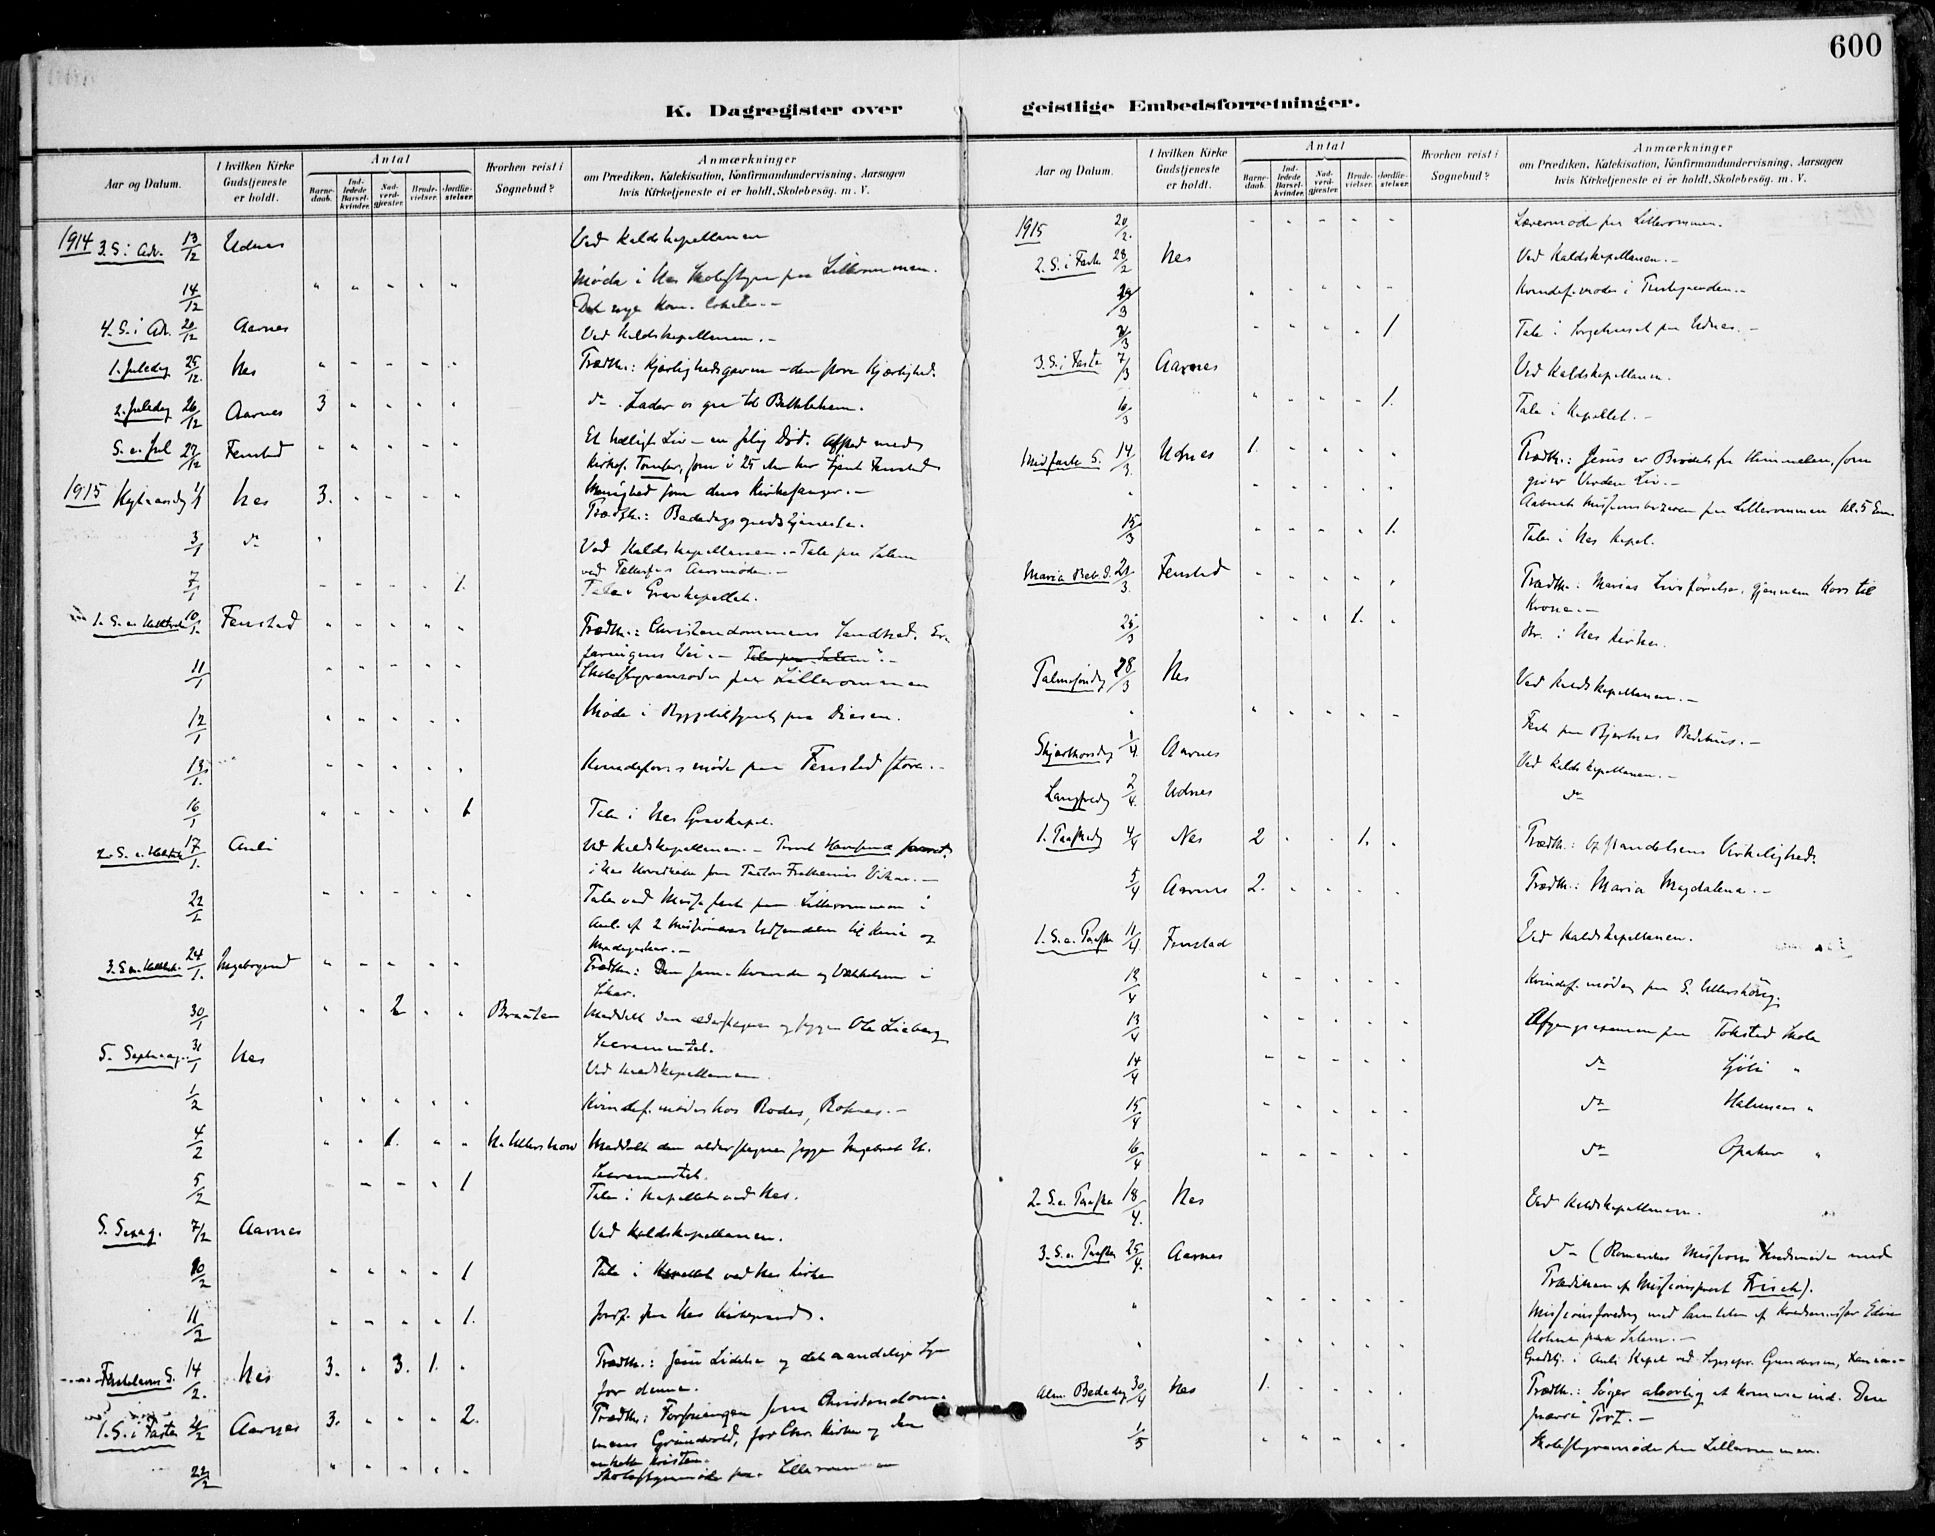 600
K. Dagregister over geistlige Embedsforretninger.
Aar og Datum.
I hvilken Kirke Gudstjeneste er holdt.
Antal
Barnedaab.
Indledede Barselkvinder.
Nadverdgjester.
Brudevielser.
Jordfæstelser.
Hvorhen reist i Sognebud?
Anmærkninger
om Prædiken, Katekisation, Konfirmandundervisning, Aarsagen
hvis Kirketjeneste ei er holdt, Skolebesög. m. V.
1914 3. S. i Adv. 13/12 Udnes Ved Kaldskapellanen
14/12 " " " " " Møde i Nes Skolestyre paa Lillerommen.
Det nye Kom. lokale.-
4. S. i Adv. 20/12 Aarnes Ved Kaldskapellanen.-
1. Juledag 25/12. Nes Prædik.: Kjærlighedsgaven - den store Kjærlighed.
2. Juledag 26/12 Aarnes 3 do. Lader os gaa til Bethlehem.
S. e. Jul 27/12 Fenstad Et helligt Liv - en salig Død. Afsked med
Kirkes. Tomter, som i 25 Aar har tjent Fenstad
Menighed som dens Kirkesanger.-
1915 Nytaarsdag 1/1 Nes 3. Prædik.: Bededagsgudstjeneste.
3/1 do Ved Kaldskapellanen.- Tale paa Salem
ved Aarsmøde.-
7/1 1. Tale i Gravkapellet.
1. S. e. 10/1. Fenstad Prædik.: Christendommens Sandhed. Er-
faringens Vei.- Tale paa Salem".-
11/1 Skolestyremøde paa Lillerommen
12/1 Møde i paa Diesen.
13/1. Kvindeforensmøde paa Fenstad store.-
16/1 1 Tale i Nes Gravkapel.
2. S. e. 17/1. Auli Ved Kaldskapellanen.-
i Nes som Pastor Vikar.-
22/1 Tale ved Missi. fest paa Lillerommen i
Anl. af 2 Missionærers Udsendelse til Kina og
Madagaskar.-
3. S. e. 24/1. Ingeborgrud Prædik.: Den Kvinde og i
30/1 2 Braaten Meddelt den alderstegne og syge Ole Lieberg
Sacramentet.
S. Septuag. 31/1 Nes Ved Kaldskapellanen.
1/2 Kvindef. møde hos Rodes, Roknes.-
4/2 1. N. Ullershow Meddelt den alderstegne syge Ingebret U.
Sacramentet.
5/2 1 Tale i Kapellet ved Nes.
S. Sexag. 7/2 Aarnes Ved Kaldskapellanen.
10/2 1 Tale i Kapellet ved Nes Kirke
11/2 1. Jordf. paa Nes Kirkegaard.
Fastelavns S. 14/2. Nes 3. 3. 1. Prædik.: Jesu Lidelse og det aandelige Syn
for denne.
1. S. i Fasten 21/2 Aarnes 3. 2. Prædik.: Forsoningen som Christendom-
mens Grundvold, for Chr. Kirke og den
enkelte Kristen.
22/2 Skolestyremøde paa Lillerommen
Aar og Datum.
I hvilken Kirke Gudstjeneste er holdt.
Antal
Barnedaab.
Indledede Barselkvinder.
Nadverdgjester.
Brudevielser.
Jordfæstelser.
Hvorhen reist i Sognebud?
Anmærkninger
om Prædiken, Katekisation, Konfirmandundervisning, Aarsagen
hvis Kirketjeneste ei er holdt, Skolebesög. m. V.
1915 20/2. Læremøde paa Lillerommen.
2. S. i Faste 28/2 Nes Ved Kaldskapellanen.-
/3 Kvindef. møde i Prestegaarden.-
/3 1 Tale i Sørgehuset paa Udnes.-
3. S. i Faste 7/3 Aarnes Ved Kaldskapellanen.
10/3 1. Tale i Kapellet.-
Midfaste S. 14/3. Udnes 1. Prædik.: Jesus er Brødet fra Himmelen, som
giver Verden Liv.-
" Aabnet Missionsbazaren paa Lillerommen Kl. 5 Em.
15/3 1. Tale i Nes Kapel.
Maria Beb. D. 21/3. Fenstad Prædik.: Marias Livsførelse, gjennem Kors til
Krone.-
25/3 1. Br. i Nes Kirke.
Palmesøndag 28/3 Nes Ved Kaldskapellanen.-
" Fest paa Bjertnes Bedehus.-
Skjærthorsdag 1/4. Aarnes Ved Kaldskapellanen.-
Langfredag 2/4. Udnes do
1. Paaskedag 4/4 Nes 2 1. Prædik.: Opstandelsens Virkelighed.
5/4 Aarnes 2. Prædik.: Maria Magdalena.-
1. S. e. Paaske 11/4 Fenstad Ved Kaldskapellanen.
12/4 Kvindef. møde paa S. Ullershov.
13/4 Afgangsexamen paa Tokstad Skole
14/4 do "
15/4 do "
16/4 do Opaker "
2. S. e. Paaske 18/4. Nes Ved Kaldskapellanen.
3. S. e. Paaske 25/4. Aarnes do (Romerikes Missions Kredsmøde med
Prædiken af Missionsprest Frisch).
" Missionsforedrag med Samtale af
paa Salem.-
" Gudstj. i Auli Kapel ved Gundersen,
Alm. Bededag 30/4 Nes 1. Prædik.: Søger alvorlig at komme ind. Den
snævre Port.-
1/5 Skolestyremøde paa Lillerommen.